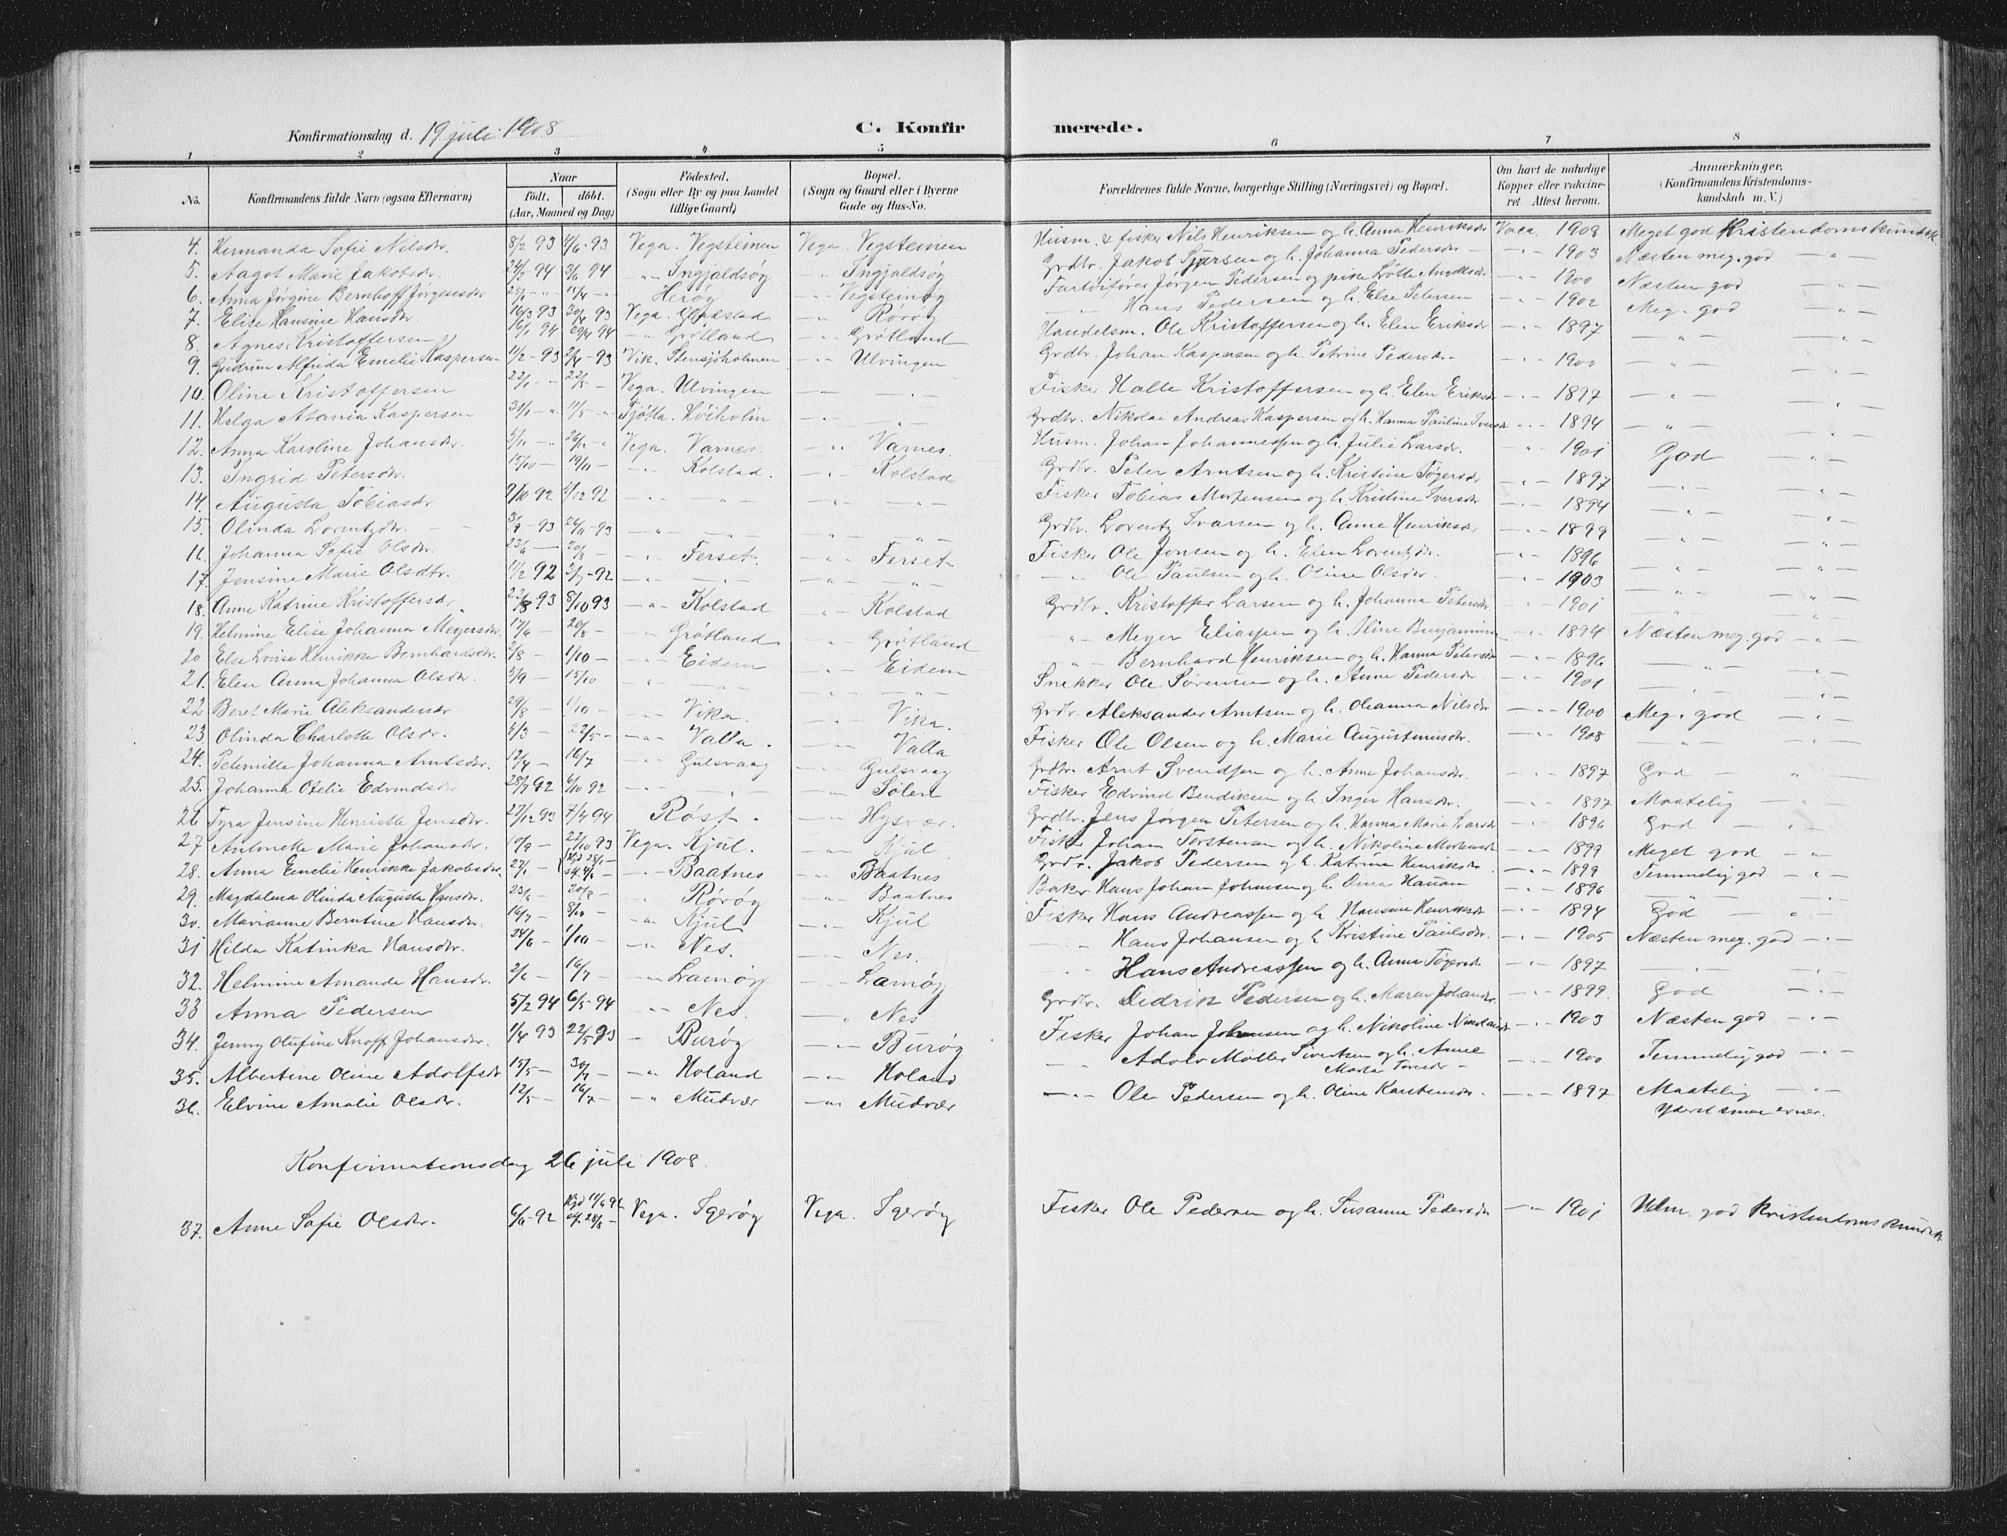 Konfirmationsdag d. 19 juli 1908
C. Konfirmerede.
1 2 3 4 5 6 7 8
No. Konfirmandens fulde Navn (ogsaa Efternavn) Naar født. døbt. (Aar, Maaned og Dag) Fødested. (Sogn eller By og paa Landet tillige Gaard) Bopæl. (Sogn og Gaard eller i Byerne Gade og Hus-No. Forældrenes fulde Navne, borgerlige Stilling (Næringsvei) og Bopæl. Om havt de naturlige Kopper eller vakcineret. Attest herom. Anmærkninger. (Konfirmandens Kristendomskundskab m. V.)
4. Hermanda Sofie Nilsdr. 8/2 93 4/6 - 93 Vega. Vegsteinen Vega. Vegsteinen Husm. & fisker Nils Henriksen og h. Anna Henriksdr Vacc. 1908 Meget god Kristendomskundsk
5. Aagot Marie Jakobsdr. 94 94 -"- Ingjaldsøy -"- Ingjaldsøy Grdbr. Jakob og h. Johanna Pedersdr -"- 1903 Næsten meg. god -"-
6. Anna Jørgine Bernhoff Jørgensdr Herøy -"- Vegsteinøy Jørgen Pedersen og 1900 Næsten god -"-
7. Elise Hansine Hansdr. 16/3 93 20/4 93 Vega. -"- Rørøy Hans Pedersen og h. Else Petersen -"- 1902 Meg. god -"-
8. Agnes Kristoffersen 16/1 94 29/4 94 " Grøtland -"- Grøtland Handelsm. Ole Kristoffersen og h. Elen Eriksdr -"- 1897 -"- -"-
9. Gudrun Alfrida Emelie Kaspersen 11/2 - 93 2/4 - 93 Vik. Stensjøholmen -"- Ulvingen Grdbr. Johan Kaspersen og h. Petrine Pedersdr - -"- 1900 -"- -"-
10. Oline Kristoffersen 22/1 - " 22/5 - Vega. Ulvingen -"- -"- Fisker Halle Kristoffersen og h. Elen Eriksdr -"- 1897 -"- -"-
11. Helga Atania Kaspersen 31/1 - " 11/5 - " Tjøtta. Høiholm -"- -"- Grdbr. Nikolai Andreas Kaspersen og h. Hanna Pauline Iversdr -"- 1894 -"- -"-
12. Anna Karoline Johansdr. 26/12 - " Vega. Varnes. -"- Varnes. Husm. Johan Johannessen og h. Julie Larsdr. " 1901 God -"-
13. Ingrid Petersdr. 15/10 - 19/11 - -"- Kolstad. -"- Kolstad Grdbr. Peter Arntsen og h. Kristine Tøgersdr -"- 1897 -"- -"-
14. Augusta Tobiasdr 9/10 92 4/12 92 -"- -"- " " Fisker Tobias Mortensen og h. Kristine Iversdr -"- 1894 -"- -"-
15. Olinda Lorentzdr. - - 3/9 - 93 26/11 - 93 -"- -"- -"- -"- Grdbr. Lorentz Ivarsen og h. Anne Henriksdr -"- 1899 -"- -"-
16. Johanna Sofie Olsdr. 23/6 - 20/8 - -"- Ferset. -"- Ferset Fisker Ole Jonsen og h. Elen Lorentzdr. -"- 1896 -"- -"-
17. Jensine Marie Olsdtr. 11/2 92 3/7 - 92 -"- -"- -"- " -"- Ole Paulsen og h. Oline Olsdr. -"- 1903 -"- -"-
18. Anne Katrine Kristoffersdr. 22/8 93 8/10 93 -"- Kolstad -"- Kolstad Grdbr. Kristoffer Larsen og h. Johanna Petersdr -"- 1901 -"- -"-
19. Helmine Elise Johanna Meyersdr. 17/6 - 20/8 - -"- Grøtland -"- Grøtland -"- Meyer Eliassen og h. Oline Benjaminsdr -"- 1894 Næsten meg. god -"-
20 Else Lovise Henrikke Bernhardsdr. 2/8 - 1/10 - -"- Eidem -"- Eidem -"- Bernhard Henriksen og h. Hanna Petersdr -"- 1896 -"- -"-
21. Elen Anna Johanna Olsdr. 2/9 - 15/10 " -"- -"- -"- Snekker Ole Sørensen og h. Anne Pedersdr -"- 1901 -"- -"-
22 Beret Marie Aleksandersdr 29/8 - 1/10 - -"- Vika. -"- Vika. Grdbr. Aleksander Arntsen og h. Olianna Nilsdr -"- 1900 Meg. god -"-
23 Olinda Charlotte Olsdr. 4/3 - 22/5 - -"- Valla. -"- Valla Fisker Ole Olsen og h. Marie Augustinusdr. -"- 1908 " -"-
24. Peternille Johanna Arntsdr. 12/4 - 16/7 -"- Gulsvaag -"- Gulsvaag Grdbr. Arnt Svendsen og h. Anne Johansdr. -"- 1897 God - "
25. Johanna Otelie Edvindsdr 28/7 92 6/10 92 -"- -"- -"- Solen Fisker Edvind Bendiksen og h. Inger Hansdr. -"- 1897 Maatelig -"-
26 Tyra Jensine Henriette Jensdr. 27/12 93 7/4 94 Røst. -"- Hysvær. Grdbr. Jens Jørgen Petersen og h. Hanna Marie Larsdr -"- 1896 God -"-
27 Antonette Marie Johansdr. 17/9 - 22/10 93 Vega. Kjul. -"- Kjul Fisker Johan Torstensen og h. Nikoline Mortensdr -"- 1899 Meget god -"-
28. Anna Emelie Henrikke Jakobsdr. 27/1 - -"- Baatnes -"- Baatnes Grdbr. Jakob Pedersen og h. Katrine Henriksdr. -"- 1899 Temmelig god -"-
29. Magdalena Olinda Augusta Hansdr. 23/6 - 20/8 - " Rørøy -"- Baatnes Baker Hans Johan Johansen og h. Hansen -"- 1896 -"- -"-
30. Marianne Berntine Hansdr. 16/7 - 8/10 - -"- Kjul -"- Kjul Fisker Hans Andreassen og h. Hansine Henriksdr -"- 1894 God -"-
31 Hilda Katinka Hansdr. 24/6 - 1/10 - -"- Nes. -"- Nes. -"- Hans Johansen og h. Kristine Paulsdr. -"- 1905 Næsten meg. god -"-
32. Helmine Amanda Hansdr. 2/6 - 16/7 - -"- Lamøy -"- Lamøy -"- Hans Andreassen og h. Anna Tøgersdr -"- 1897 -"- -"-
33 Anna Pedersen 5/2 94 6/5 - 94 -"- Nes. -"- Nes Grdbr. Didrik Pedersen og h. Maren Johansdr. -"- 1899. God -"-
34. Jenny Olufine Knoff Johansdr. 1/4 93 22/5 93 - Burøy -"- Burøy Fisker Johan Johansen og h. Nikoline Nikolaisdr -"- 1903 Næsten god -"-
35. Albertine Oline Adolfsdr 15/5 - 30/7 - -"- Holand -"- Holand -"- Adolv Møller Sivertsen og h. Anne Marta Toresdr - -"- 1900 Temmelig god -"-
36. Elvine Amalie Olsdr. 12/5 - 16/7 - -"- Mudvær -"- Mudvær -"- Ole Pedersen og h. Oline Karstensdr. -"- 1897 Maatelig -"-
Yderst smaa evner.
Konfirmationsdag 26 juli 1908.
37. Anne Sofie Olsdr. 6/6 - 92 Vega. Igerøy Vega. Igerøy Fisker Ole Pedersen og h. Susanne Pedersdr -"- 1901 Udm. god Kristendomskundsk.